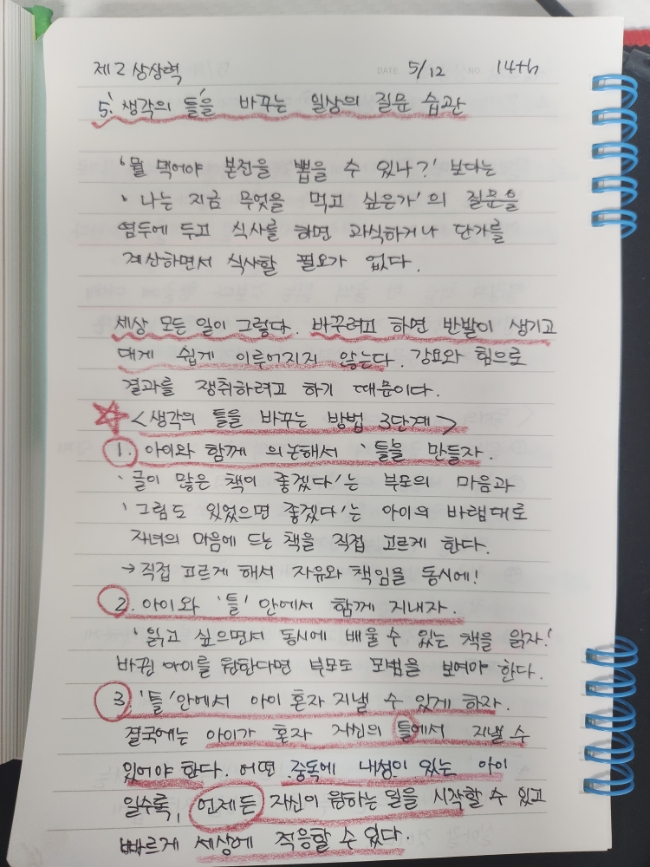 제2 상상력 5/12 14th
5. 생각의 '틀'을 바꾸는 일상의 질문 습관
'뭘 먹어야 본전을 뽑을 수 있나?' 보다는
'나는 지금 무엇을 먹고 싶은가'의 질문을
염두에 두고 식사를 하면 과식하거나 단가를
계산하면서 식사할 필요가 없다.
세상 모든 일이 그렇다. 바꾸려고 하면 반발이 생기고
대게 쉽게 이루어지지 않는다. 강요와 힘으로
결과를 쟁취하려고 하기 때문이다.
<생각의 틀을 바꾸는 방법 3단계>
1. 아이와 함께 의논해서 '틀'을 만들자.
'글이 많은 책이 좋겠다'는 부모의 마음과
'그림도 있었으면 좋겠다'는 아이의 바램대로
자녀의 마음에 드는 책을 직접 고르게 한다.
→ 직접 고르게 해서 자유와 책임을 동시에!
2. 아이와 '틀' 안에서 함께 지내자.
'읽고 싶으면서 동시에 배울 수 있는 책을 읽자!'
바뀐 아이를 원한다면 부모도 모범을 보여야 한다.
3. '틀' 안에서 아이 혼자 지낼 수 있게 하자.
결국에는 아이가 혼자 자신의 틀에서 지낼 수
있어야 한다. 어떤 중독에 내성이 있는 아이
일수록, 언제든 자신이 원하는 일을 시작할 수 있고
빠르게 세상에 적응할 수 있다.